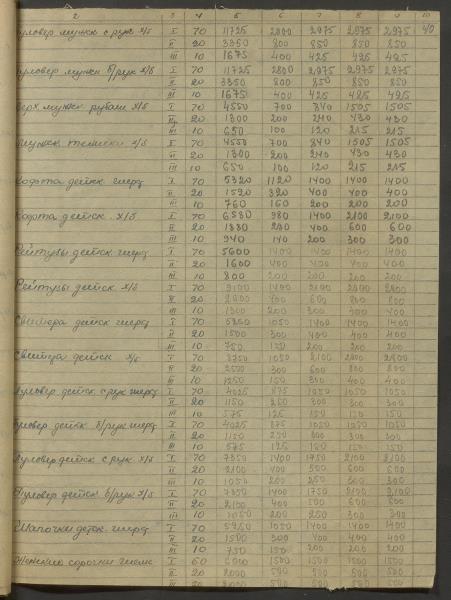 2 3 4 5 6 7 8 9 10
Пуловер мужск с рук х/б I 70 11725 2800 2975 2975 2975 40
II 20 3350 800 850 850 850
III 10 1675 400 425 425 425
Пуловер мужск б/рук х/б I 70 11725 2800 2975 2975 2975
II 20 3350 800 850 850 850
III 10 1675 400 425 425 425
Верх. мужск рубаш х/б I 70 4550 700 840 1505 1505
II 20 1300 200 240 430 430
III 10 650 100 120 215 215
мужск х/б I 70 4550 700 840 1505 1505
II 20 1300 200 240 430 430
III 10 650 100 120 215 215
Кофта детск шерст I 70 5320 1120 1400 1400 1400
II 20 1520 320 400 400 400
III 10 760 160 200 200 200
Кофта детск. х/б I 70 6580 980 1400 2100 2100
II 20 1880 280 400 600 600
III 10 940 140 200 300 300
Рейтузы детск шерст I 70 5600 1400 1400 1400 1400
II 20 1600 400 400 400 400
III 10 800 200 200 200 200
Рейтузы детск х/б I 70 9100 1400 2100 2800 2800
II 20 400 600 800 800
III 10 1300 200 300 400
Свитера детск шерст I 70 5250 1050 1400 1400 1400
II 20 1500 300 400 400 400
III 10 750 150 200 200 200
Свитера детск х/б I 70 1050 2100 2800 2800
II 20 2500 300 600 800 800
III 10 1250 150 300 400 400
Пуловер детск с рук шерст I 70 4025 875 1050 1050 1050
II 20 1150 250 300 300 300
III 10 575 125 150 150 150
Пуловер детск б/рук шерст I 70 4025 875 1050 1050 1050
II 20 1150 250 300 300 300
III 10 575 125 150 150 150
Пуловер детск с рук. х/б I 70 7350 1400 1750 2100 2100
II 20 2100 400 500 600 600
III 10 1050 200 250 300 300
Пуловер детск б/рук х/б I 70 7350 1400 1750 2100 2100
II 20 2100 400 500 600 600
III 10 1050 200 250 300 300
Шапочки детск шерст I 70 5250 1050 1400 1400 1400
II 20 1500 300 400 400 400
III 10 750 150 200 200 200
Женские сорочки I 60 6000 1500 1500 1500 1500
II 20 2000 500 500 500 500
III 20 2000 500 500 500 500